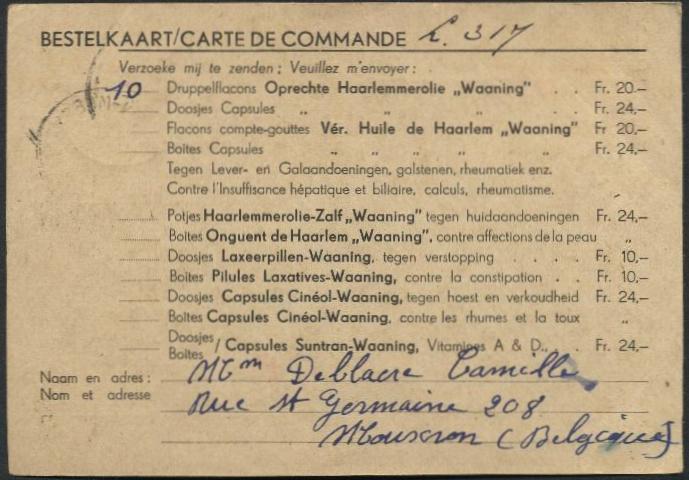 BESTELKAART/CARTE DE COMMANDE L. 317
Verzoeke mij te zenden; Veuillez m'envoyer:
10 Druppelflacons Oprechte Haarlemmerolie „Waaning" . . Fr. 20.—
Doosjes Capsules „ „ „ . . Fr. 24,—
Flacons compte-gouttes Vér. Huile de Haarlem „Waaning" Fr 20,—
Boîtes Capsules „ „ „ „ „ Fr. 24,—
Tegen Lever- en Galaandoeningen, galstenen, rheumatiek enz.
Contre l'Insuffisance hépatique et biliaire, calculs, rheumatisme.
Potjes Haarlemmerolie-Zalf „Waaning" tegen huidaandoeningen Fr. 24,—
Boîtes Onguent de Haarlem „Waaning", contre affections de la peau „
Doosjes Laxeerpillen-Waaning, tegen verstopping . . . . Fr. 10,—
Boîtes Pilules Laxatives-Waaning, contre la constipation . . Fr. 10,—
Doosjes Capsules Cinéol-Waaning, tegen hoest en verkoudheid Fr. 24,—
Boîtes Capsules Cinéol-Waaning, contre les rhumes et la toux „
Doosjes/Boîtes Capsules Suntran-Waaning, Vitamines A & D. . . Fr. 24,—
Naam en adres: Mm Deblaere Camille
Nom et adresse Rue St Germaine 208
Mouscron (Belgique)